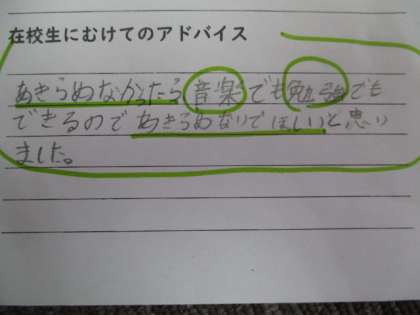 在校生にむけてのアドバイス
あきらめなかったら音楽でも勉強でも
できるのであきらめないでほしいと思い
ました。